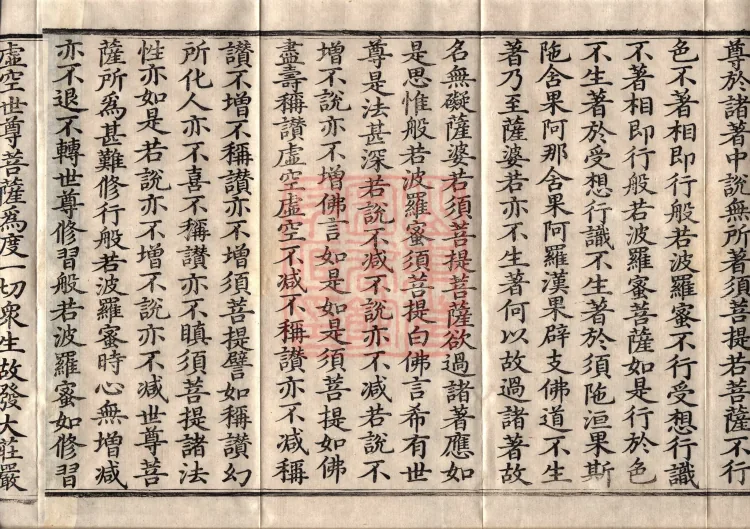 尊於諸著中說無所著須菩提若菩薩不行
色不著相即行般若波羅蜜不行受想行識
不著相即行般若波羅蜜菩薩如是行於色
不生著於受想行識不生著於須陁洹果斯
陁含果阿那含果阿羅漢果辟支佛道不生
著乃至薩婆若亦不生著何以故過諸著故
名無礙薩婆若須菩提菩薩欲過諸著應如
是思惟般若波羅蜜須菩提白佛言希有世
尊是法甚深若說不減不說亦不減若說不
增不說亦不增佛言如是如是須菩提如佛
盡壽稱讃虛空虛空不減不稱讃亦不減稱
讃不增不稱讃亦不增須菩提譬如稱讃幻
所化人亦不喜不稱讃亦不瞋須菩提諸法
性亦如是若說亦不增不說亦不減世尊菩
薩所為甚難修行般若波羅蜜時心無增減
亦不退不轉世尊修習般若波羅蜜如修習
虛空世尊菩薩為度一切眾生故發大莊嚴